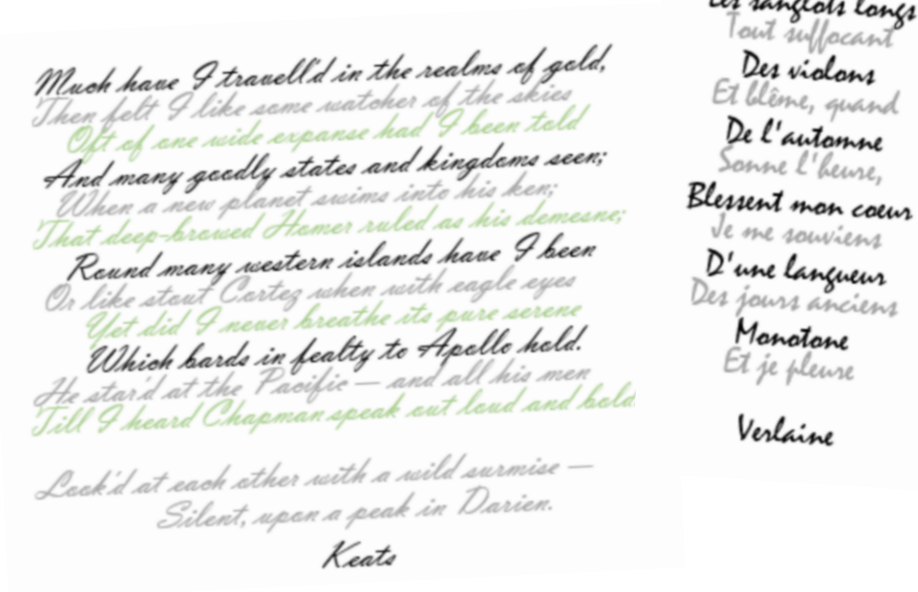 Much have I travell'd in the realms of gold,
Then felt I like some watcher of the skies
Oft of one wide expanse had I been told
And many goodly states and kingdoms seen;
When a new planet swims into his ken;
That deep-browed Homer ruled as his demesne;
Round many western islands have I been
Or like stout Cortez when with eagle eyes
Yet did I never breathe its pure serene
Which bards in fealty to Apollo hold.
He star'd at the Pacific — and all his men
Till I heard Chapman speak out loud and bold
Look'd at each other with a wild surmise —
Silent, upon a peak in Darien.
Keats
Les sanglots longs
Tout suffocant
Des violons
Et blême, quand
De l'automne
Sonne l'heure,
Blessent mon coeur
Je me souviens
D'une langueur
Des jours anciens
Monotone
Et je pleure
Verlaine